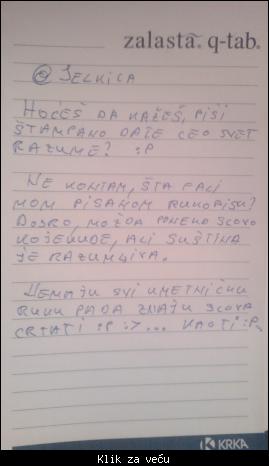 zalasta® q-tab®
@ JELKICA
HOĆEŠ DA KAŽEŠ, PIŠI
ŠTAMPANO DA TE CEO SVET
RAZUME? :P
NE KONTAM, ŠTA FALI
MOM PISANOM RUKOPISU?
DOBRO, MOŽDA PONEKO SLOVO
KOJEKUDE, ALI SUŠTINA
JE RAZUMLJIVA.
NEMAJU SVI UMETNIČKU
RUKU PA DA ZNAJU SLOVA
CRTATI :P :>... KAO TI :P
KRKA
Klik za veću